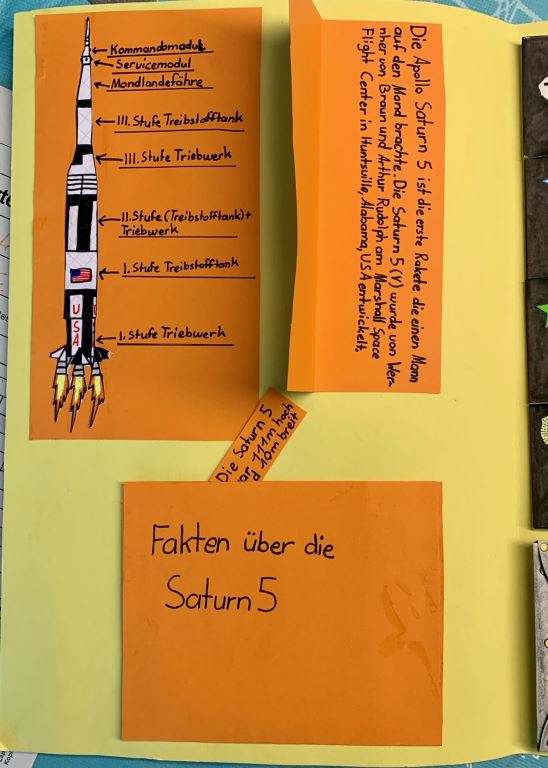 Kommandomodul
Servicemodul
Mondlandefähre
III. Stufe Treibstofftank
III. Stufe Triebwerk
II. Stufe (Treibstofftank) +
Triebwerk
I. Stufe Treibstofftank
I. Stufe Triebwerk
USA
Die Apollo Saturn 5 ist die erste Rakete die einen Mann
auf den Mond brachte. Die Saturn 5 (V) wurde von Wer-
nher von Braun und Arthur Rudolph am Marshall Space
Flight Center in Huntsville, Alabama, USA entwickelt.
Die Saturn 5
111m hoch
10m breit
Fakten über die
Saturn 5